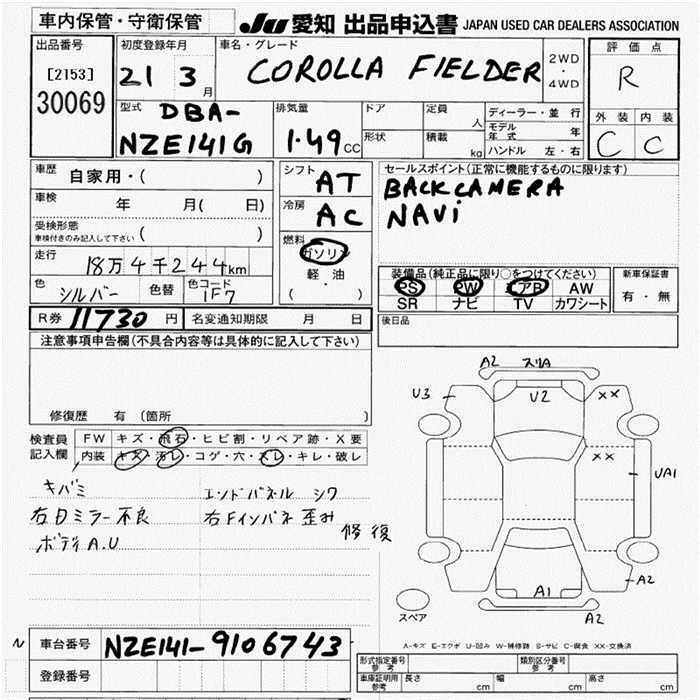 車内保管・守衛保管
JU 愛知 出品申込書 JAPAN USED CAR DEALERS ASSOCIATION
出品番号
[2153]
30069
初度登録年月
21 3 月
車名・グレード
COROLLA FIELDER
2WD
・
4WD
評価点
R
外装 内装
C C
型式
DBA-
NZE141G
排気量
1.49 CC
ドア
形状
定員 人
積載 kg
ディーラー・並行
モデル年式 年
ハンドル 左・右
車歴 自家用・( )
車検 年 月( 日)
受検形態
車検付きのみ記入して下さい ( )
走行 18万4千244km
色 シルバー 色替 色コード 1F7
シフト AT
冷房 AC
燃料
ガソリン
軽・油
( ・ )
セールスポイント(正常に機能するものに限ります)
BACKCAMERA
NAVi
装備品(純正品に限り○をつけてください)
PS PW エアB AW
SR ナビ TV カワシート
新車保証書
有・無
R券 11730 円 名変通知期限 月 日
後日品
注意事項申告欄(不具合内容等は具体的に記入して下さい)
修復歴 有 (箇所
検査員
記入欄
FW キズ・飛石・ヒビ割・リペア跡・X要
内装 キズ・汚レ・コゲ・穴・スレ・キレ・破レ
キバミ エンドパネル シワ
右日ミラー不良 右Fインパネ歪み 修復
ボディA.U
A2 スリA
U3
U2
××
××
UA1
A1
A2
A2
スペア
A-キズ E-エクボ U-凹み W-補修跡 S-サビ C-腐食 XX-交換済
N
車台番号 NZE141-9106743
登録番号
形式指定番号 参考
類別区分番号 参考
車庫証明用 参考 長さ cm 幅 cm 高さ cm